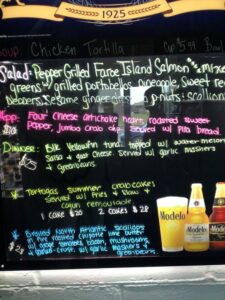 1925
Soup Chicken Tortilla Cup $5.99 Bowl
Salad: Pepper Grilled Faroe Island Salmon mixed
greens w/ grilled portobello, pineapple, sweet red
peppers, sesame ginger pnuts, scallions
App: Four cheese artichoke heart, roasted sweet
Pepper, Jumbo crab dip served w/ pita bread
Dinner: Blk Yellowfin tuna topped w/ water melon
Salsa & goat cheese served w/ garlic mashers
& greenbeans
Tortugas Summer crabcakes
Served w/ fries & slaw &
cajun remoulade
1 cake $20 2 cakes $28
Broiled North Atlantic Scallops
in fire roasted chipotle lime butter
w/ tomato, bacon, mushrooms
w/ garlic mashers &
greenbeans
Modelo
Modelo
Modelo